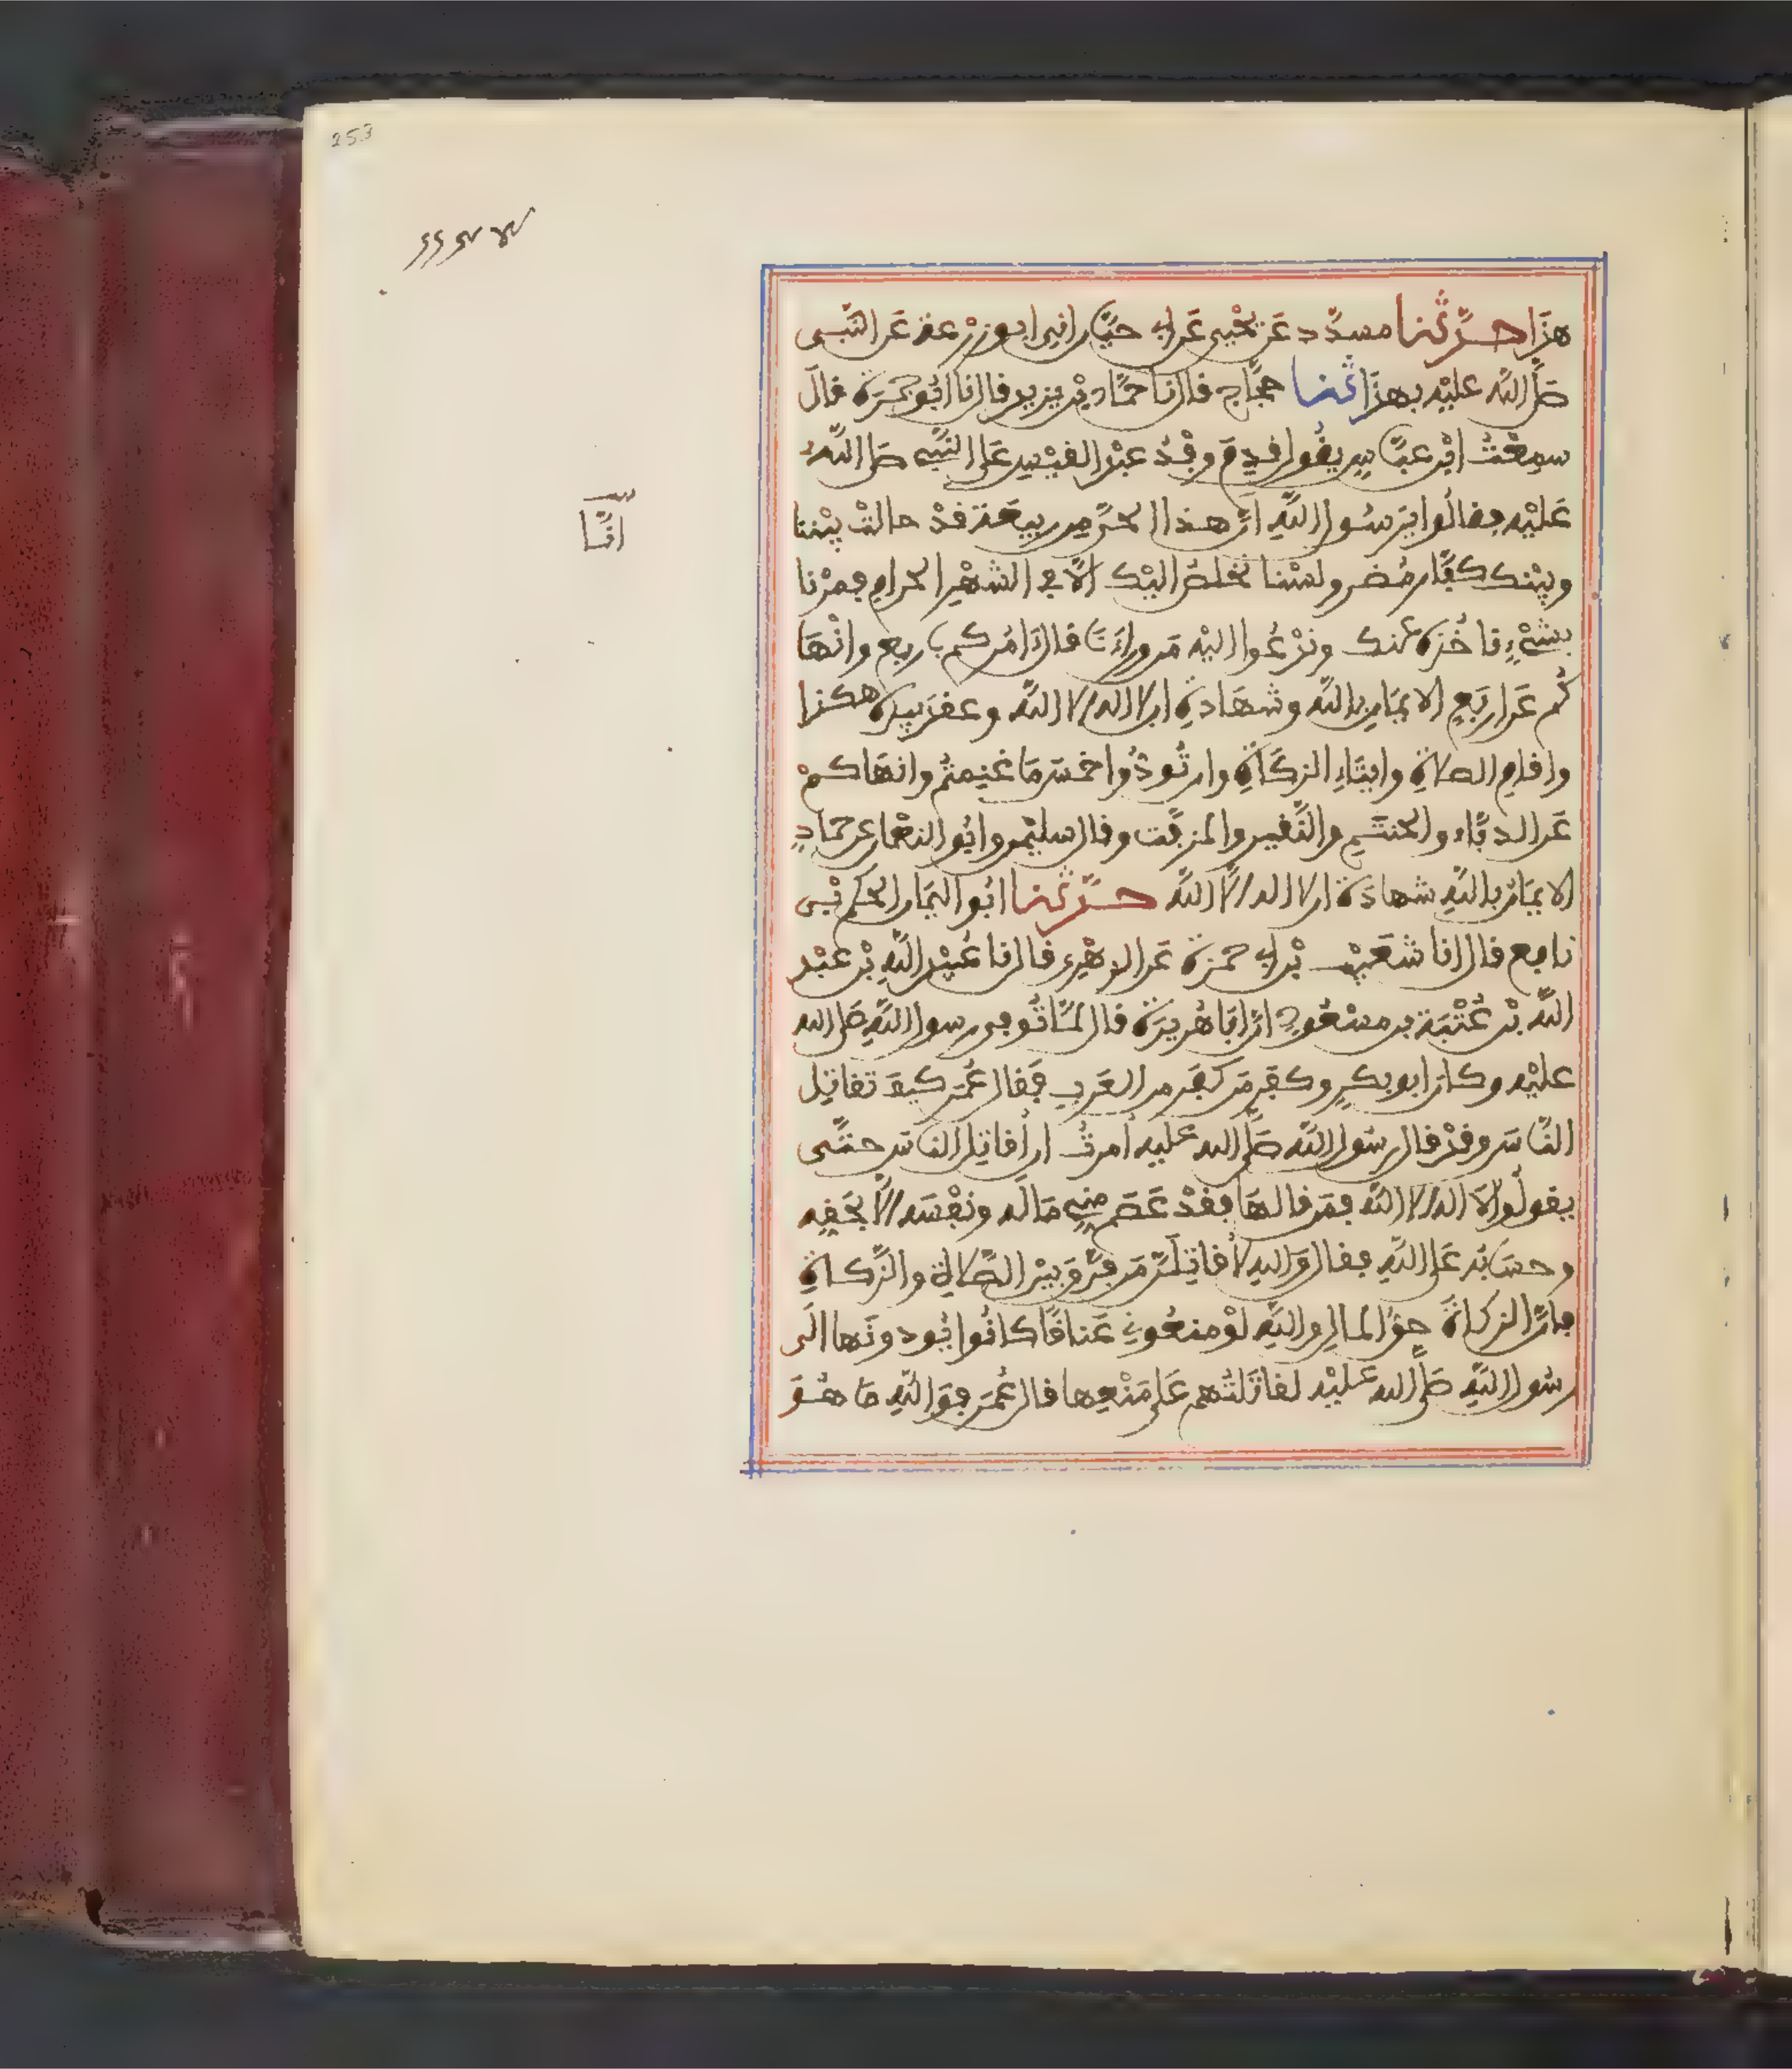 253
انَّا
هذَا حدَّثنا مسدَّد عَن يحْيى عَن ابى حيَّان انى ابو زرْعة عَن النَّبى
صَلى اللَّه عليْه بهذَا ثنا حجَّاج قال نا حمَّاد بْن زيد قال نا ابُو جمْرَة قالَ
سمِعْتُ ابْن عبَّاسٍ يقُول قدِمَ وفْدُ عبْد القيْسِ عَلى النَّبىِّ صَلى اللَّهُ
عَليْه فقالُوا يَرسُول اللَّهِ انَّ هذا الحىَّ مِن ربيعَة قدْ حالتْ بيْننا
وبيْنك كفَّار مُضر ولسْنا نخلصُ اليْك الَّا فى الشهْرِ الحرامِ فمرْنا
بشىْءٍ ناخُذهُ عنك وندْعُوا اليْه مَن ورَاءَنَا قال ءَامُركم باربع وانْهَا
كُم عَن ارْبَعٍ الايمَانِ باللَّه وشهَادةِ ان لا اله الا اللَّه وعقدَ بيدهِ هكذا
واقامِ الصلاةِ وايتَاءِ الزكَاةِ وان تُودُّوا خمسَ مَا غنِمتُم وانهَاكمْ
عَن الدبَّاء والحنتَمِ والنَّقير والمزفَّت وقال سليْمن وابُو النعْمان عن حمَّادٍ
الايمَان باللَّهِ شهادَة ان لا اله الَّا اللَّه حدَّثنا ابُو اليمَان الحكمُ بْنى
نافِع قال انا شعَيْب بْن ابى حمزة عَن الزهْرِى قال نا عُبيْد اللَّهِ بْن عبْد
اللَّه بْن عُتْبَة بن مسْعُودٍ انَّ ابَا هُريرَة قال لمَّا تُوفى رسول اللَّهِ صَلى الله
عليْه وكان ابو بكرٍ وكفَر مَن كفَر مِن العَرب فقال عُمَر كيفَ تقاتِل
النَّاسَ وقدْ قال رسُول اللَّه صَلَّى الله عليه أمرتُ ان أقاتِل الناسَ حتَّى
يقولُوا لَا اله الا اللَّه فمَن قالهَا فقدْ عَصَم مِنى مَاله ونفْسَه الَّا بحَقِه
وحسَابُه عَلى اللَّهِ فقال وَاللهِ لَأُقاتِلَنَّ مَن فرَّقَ بيْن الصَّلاةِ والزَّكاةِ
فانَّ الزكاةَ حقُّ المالِ واللَّهِ لوْ منعُونِى عَناقًا كانُوا يُودونَها الَى
رسُول اللَّهِ صَلى الله عَليْه لقاتَلتُهم عَلى مَنْعِها قال عُمَر فوَ اللَّهِ مَا هُوَ